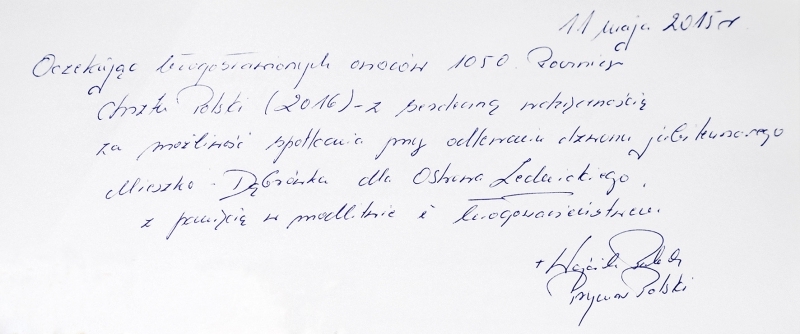 11 maja 2015 r.
Oczekując błogosławionych owoców 1050. Rocznicy
Chrztu Polski (2016) - z serdeczną wdzięcznością
za możliwość spotkania przy odlewaniu dzwonu jubileuszowego
Mieszko - Dąbrówka dla Ostrowa Lednickiego,
z pamięcią w modlitwie i błogosławieństwem.
+ Wojciech Polak
Prymas Polski